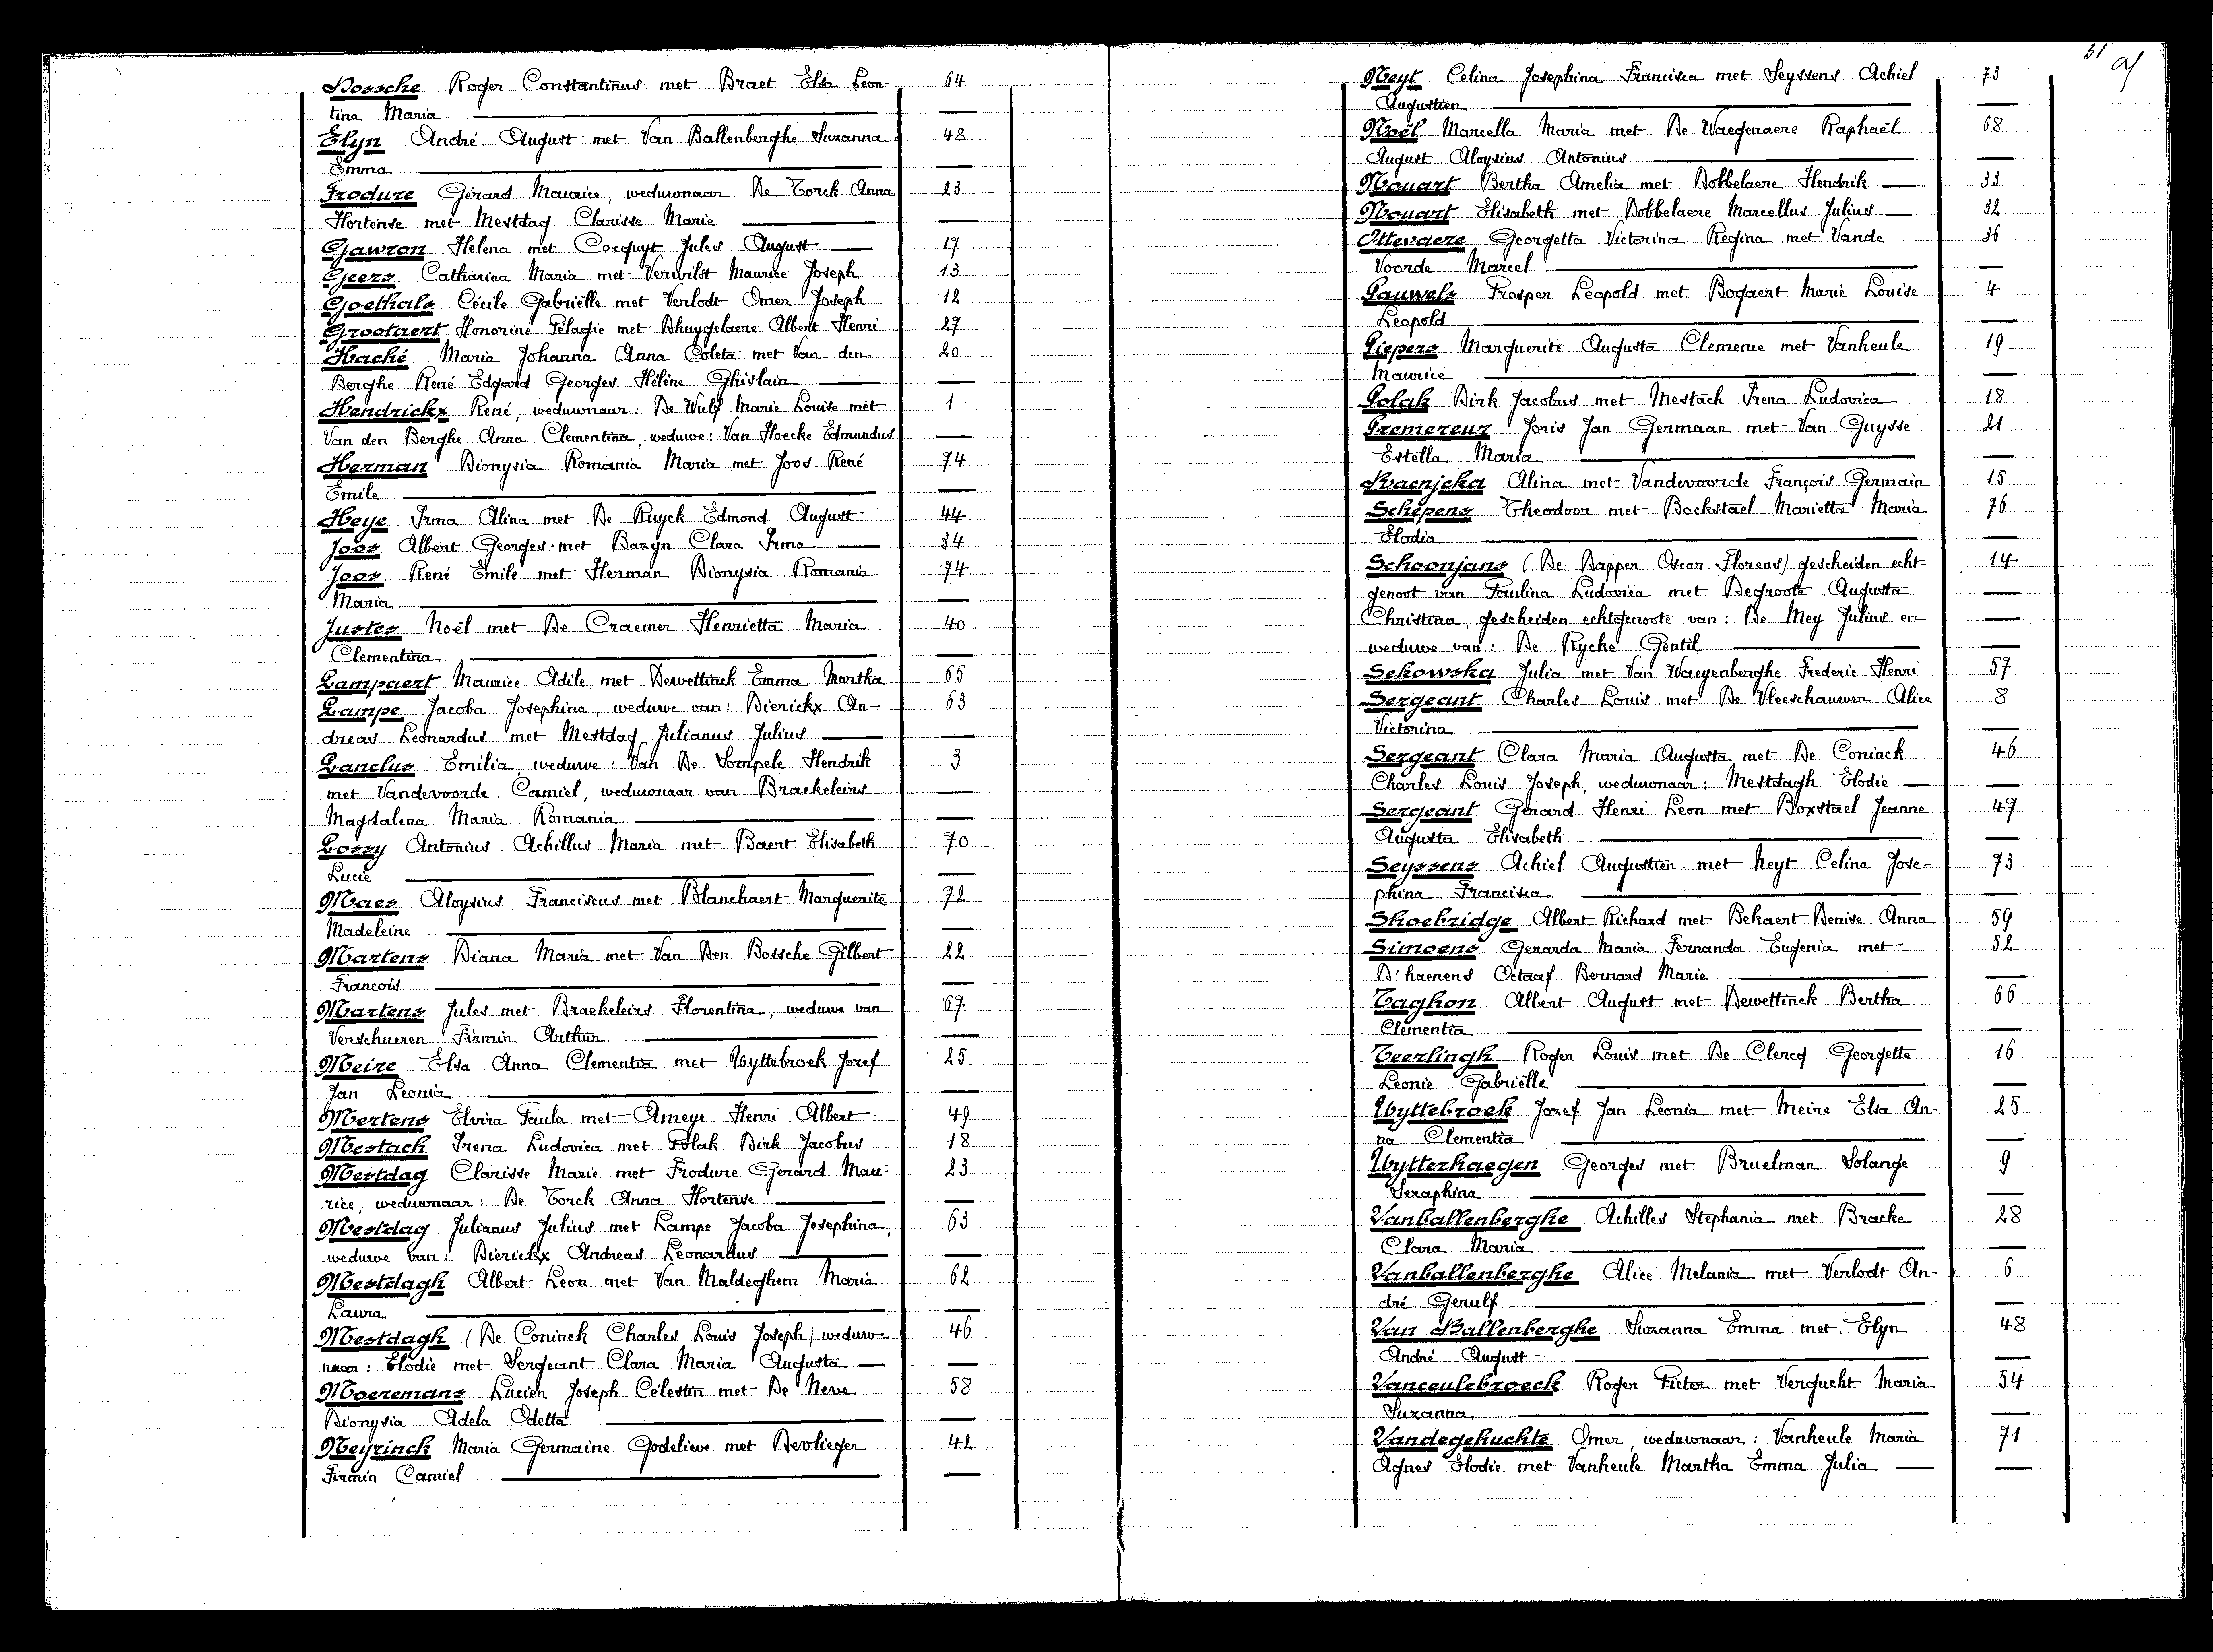 Dossche Roger Constantinus met Braet Elsa Leon- 64
tina Maria —
Elyn André August met Van Ballenberghe Suzanna 48
Emma —
Frodure Gérard Maurice, weduwnaar De Torck Anna 23
Hortense met Mestdag Clarisse Marie —
Gawron Helena met Cocquyt Jules August — 17
Geers Catharina Maria met Verwilst Maurice Joseph 13
Goethals Cécile Gabriëlle met Verlodt Omer Joseph 12
Grootaert Honorine Pelagie met Dhuygelaere Albert Henri 27
Haché Maria Johanna Anna Coleta met Van den 20
Berghe René Edgard Georges Hélène Ghislain —
Hendrickx René, weduwnaar: De Wulf Marie Louise met 1
Van den Berghe Anna Clementina, weduwe: Van Hoecke Edmundus —
Herman Dionysia Romania Maria met Joos René 74
Emile —
Heye Irma Alina met De Ruyck Edmond August 44
Joos Albert Georges met Bazyn Clara Irma — 34
Joos René Emile met Herman Dionysia Romania 74
Maria —
Justes Noël met De Craemer Henrietta Maria 40
Clementina —
Lampaert Maurice Adile met Dewettinck Emma Martha 65
Lampe Jacoba Josephina, weduwe van: Dierickx An- 63
dreas Leonardus met Mestdag Julianus Julius —
Lanclus Emilia weduwe: Van De Sompele Hendrik 3
met Vandevoorde Camiel, weduwnaar van Braekeleirs —
Magdalena Maria Romania —
Lossy Antonius Achillus Maria met Baert Elisabeth 70
Lucie —
Maes Aloysius Franciscus met Blanchaert Marguerite 72
Madeleine —
Martens Diana Maria met Van Den Bossche Gilbert 22
Francois —
Martens Jules met Braekeleirs Florentina, weduwe van 67
Verschueren Firmin Arthur —
Meire Elsa Anna Clementia met Uyttebroek Jozef 25
Jan Leonia —
Mertens Elvira Paula met Ameye Henri Albert 49
Mestach Irena Ludovica met Polak Dirk Jacobus 18
Mestdag Clarisse Marie met Frodure Gerard Mau- 23
rice, weduwnaar: De Torck Anna Hortense —
Mestdag Julianus Julius met Lampe Jacoba Josephina, 63
weduwe van: Dierickx Andreas Leonardus —
Mestdagh Albert Leon met Van Maldeghem Maria 62
Laura —
Mestdagh (De Coninck Charles Louis Joseph) weduw- 46
naar: Elodie met Sergeant Clara Maria Augusta —
Moeremans Lucien Joseph Célestin met De Neve 58
Dionysia Adela Odetta —
Neyrinck Maria Germaine Godelieve met Devlieger 42
Firmin Camiel —
31
Neyt Celina Josephina Francisca met Seyssens Achiel 73
Augustien —
Noël Marcella Maria met De Waegenaere Raphaël 68
August Aloysius Antonius —
Nouart Bertha Amelia met Dobbelaere Hendrik — 33
Nouart Elisabeth met Dobbelaere Marcellus Julius — 32
Ottevaere Georgetta Victorina Regina met Vande 36
Voorde Marcel —
Pauwels Prosper Leopold met Bogaert Marie Louise 4
Leopold —
Piepers Marguerite Augusta Clemence met Vanheule 19
Maurice —
Polak Dirk Jacobus met Mestach Irena Ludovica 18
Premereur Joris Jan Germaan met Van Guysse 21
Estella Maria —
Rvacnjcka Alina met Vandevoorde François Germain 15
Schepens Theodoor met Backstael Marietta Maria 76
Elodia —
Schoonjans (De Dapper Oscar Florens) gescheiden echt- 14
genoot van Paulina Ludovica met Degroote Augusta —
Christina, gescheiden echtgenoote van: De Mey Julius en —
weduwe van: De Rycke Gentil —
Sekowska Julia met Van Waeyenberghe Frederic Henri 57
Sergeant Charles Louis met De Vleeschauwer Alice 8
Victorina —
Sergeant Clara Maria Augusta met De Coninck 46
Charles Louis Joseph, weduwnaar: Mestdagh Elodie —
Sergeant Gerard Henri Leon met Boxstael Jeanne 47
Augusta Elisabeth —
Seyssens Achiel Augustien met Neyt Celina Jose- 73
phina Francisca —
Shoebridge Albert Richard met Bekaert Denise Anna 59
Simoens Gerarda Maria Fernanda Eugenia met 52
D'haenens Octaaf Bernard Marie —
Taghon Albert August met Dewettinck Bertha 66
Clementia —
Teerlingk Roger Louis met De Clercq Georgette 16
Leonie Gabriëlle —
Uyttebroek Jozef Jan Leonia met Meire Elsa An- 25
na Clementia —
Uytterhaegen Georges met Bruelman Solange 9
Seraphina —
Vanballenberghe Achilles Stephania met Bracke 28
Clara Maria —
Vanballenberghe Alice Melania met Verlodt An- 6
dré Gerulf —
Van Ballenberghe Suzanna Emma met Elyn 48
André August —
Vanceulebroeck Roger Pieter met Vergucht Maria 54
Suzanna —
Vandegehuchte Omer, weduwnaar: Vanheule Maria 71
Agnes Elodie met Vanheule Martha Emma Julia —